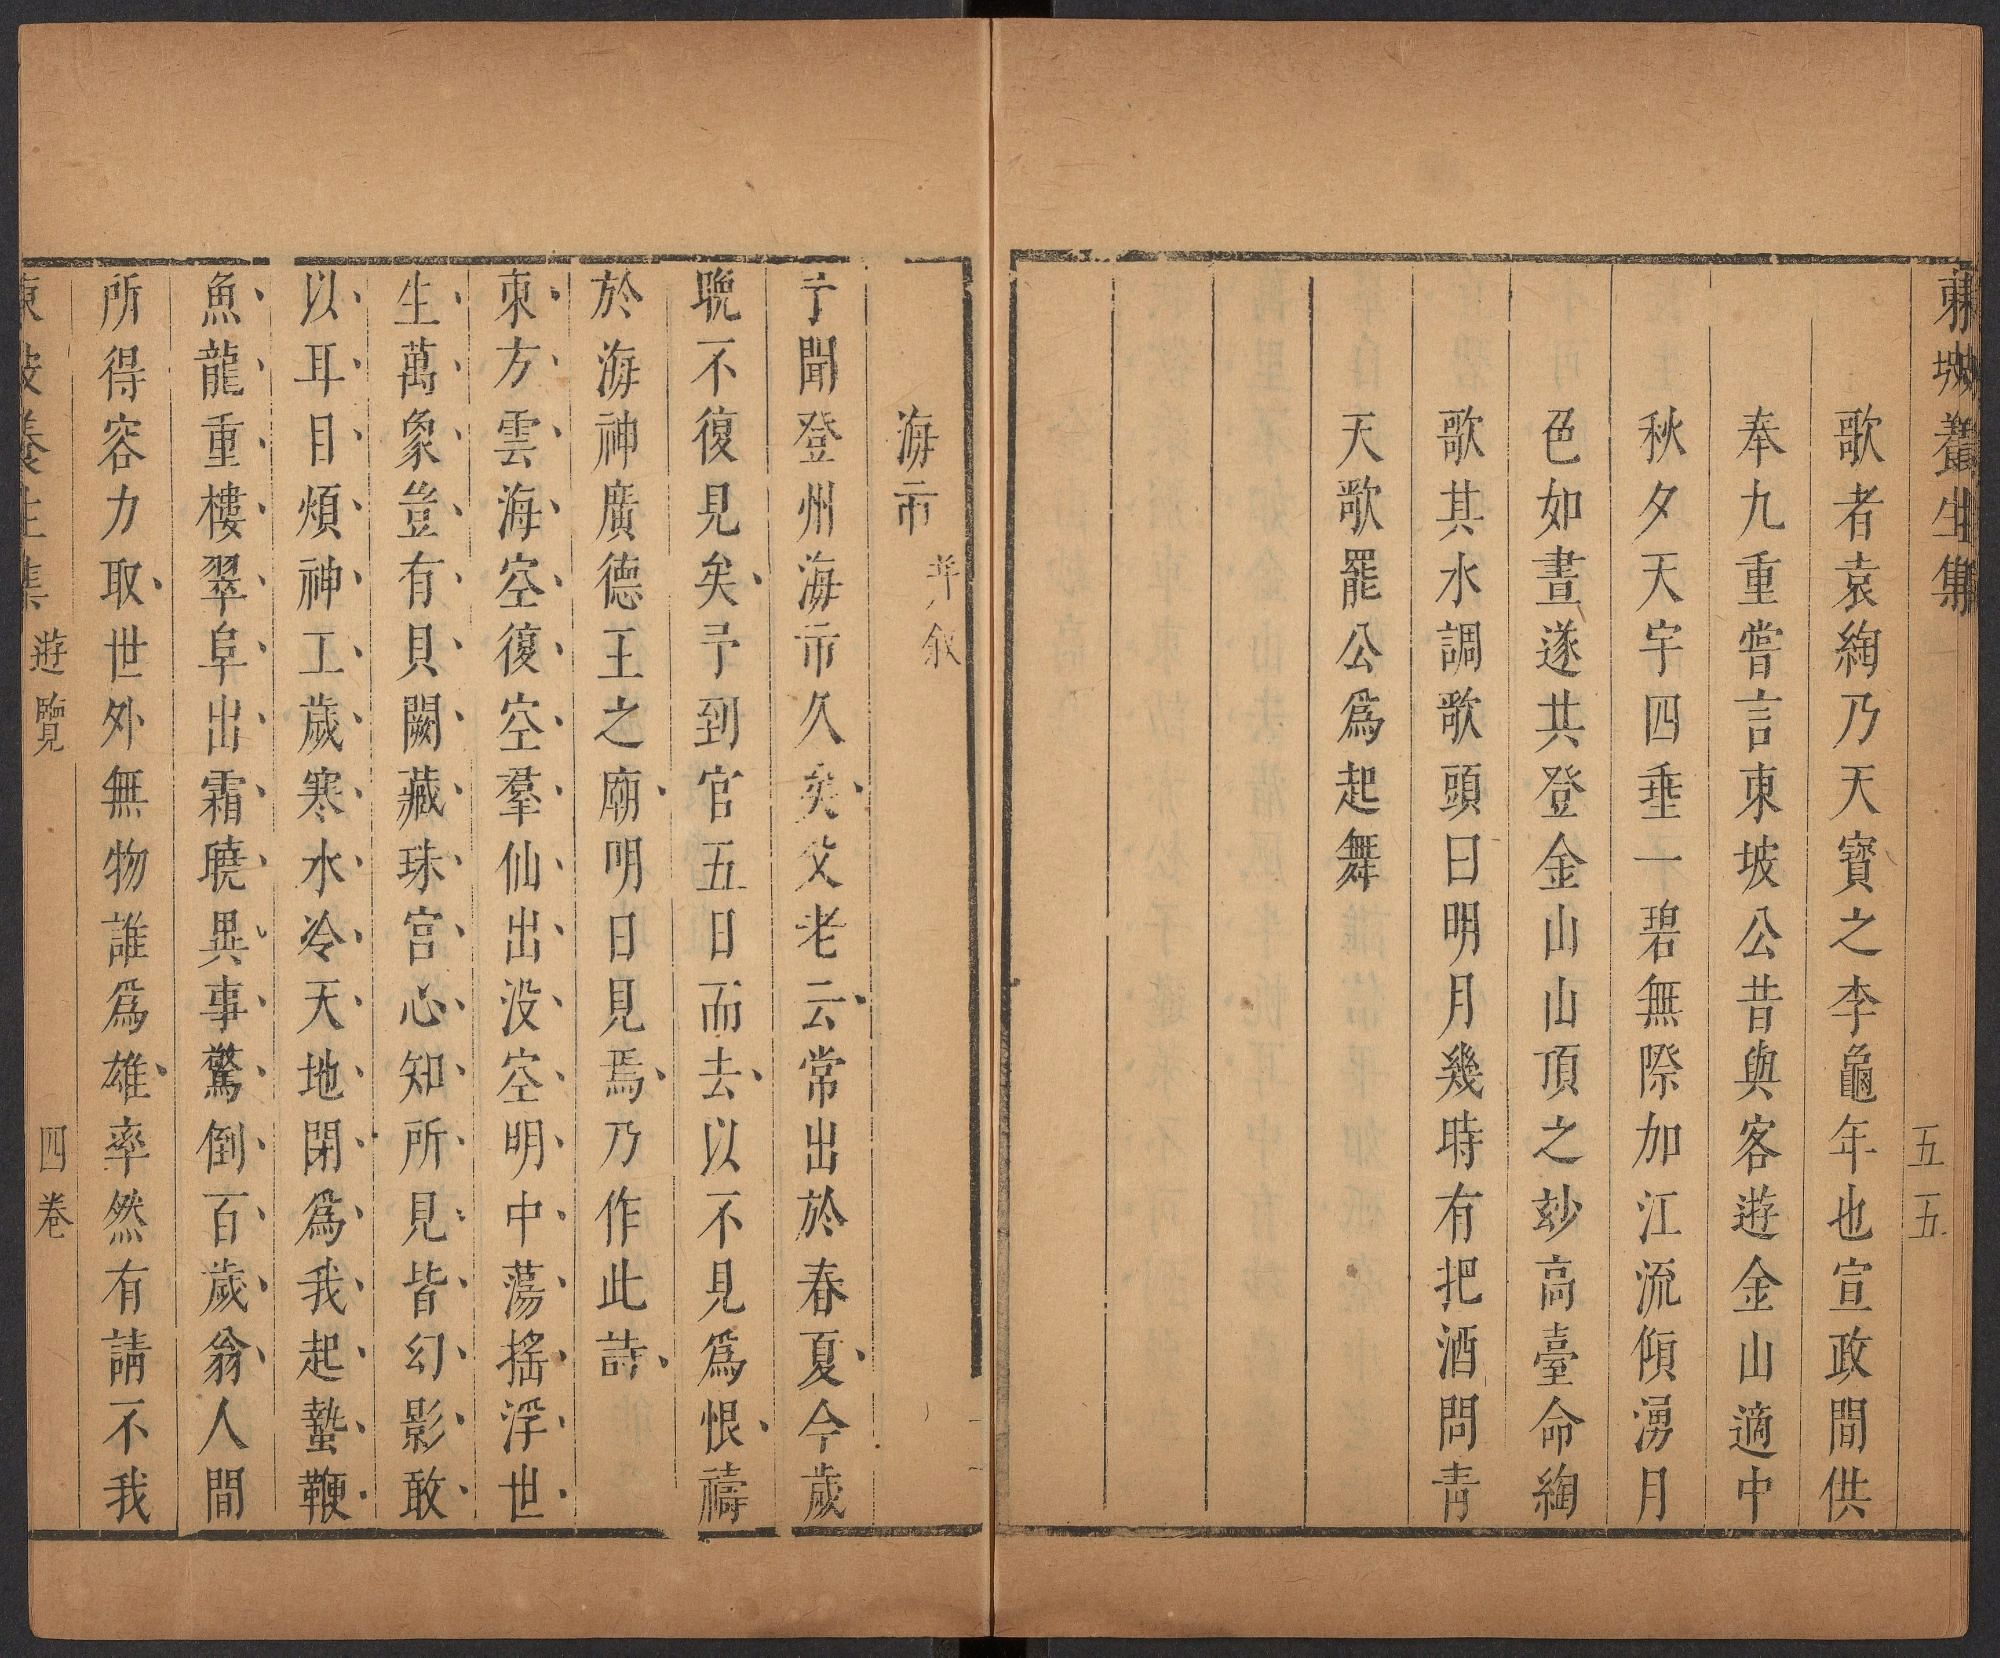 東坡養生集
五五
歌者袁綯乃天寶之李龜年也宣政間供
奉九重嘗言東坡公昔與客遊金山適中
秋夕天宇四垂一碧無際加江流傾湧月
色如晝遂共登金山山頂之妙高臺命綯
歌其水調歌頭曰明月幾時有把酒問靑
天歌罷公爲起舞
海市
并叙
予聞登州海市久矣父老云常出於春夏今歲
晩不復見矣予到官五日而去以不見爲恨禱
於海神廣德王之廟明日見焉乃作此詩
東方雲海空復空羣仙出没空明中蕩搖浮世
生萬象豈有貝闕藏珠宫心知所見皆幻影敢
以耳目煩神工歲寒水冷天地閉爲我起蟄鞭
魚龍重樓翠阜出霜曉異事驚倒百歲翁人間
所得容力取世外無物誰爲雄率然有請不我
東坡養生集
遊覽
四卷